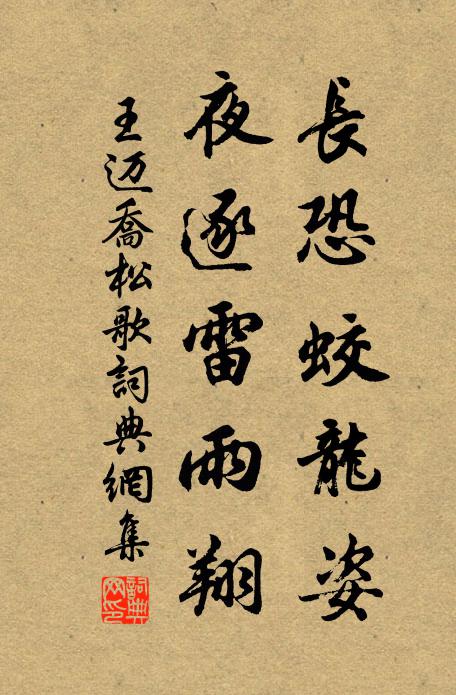 長恐蛟龍姿
夜逐雷雨翔
王迈喬松歌詞典網集
詞典网印